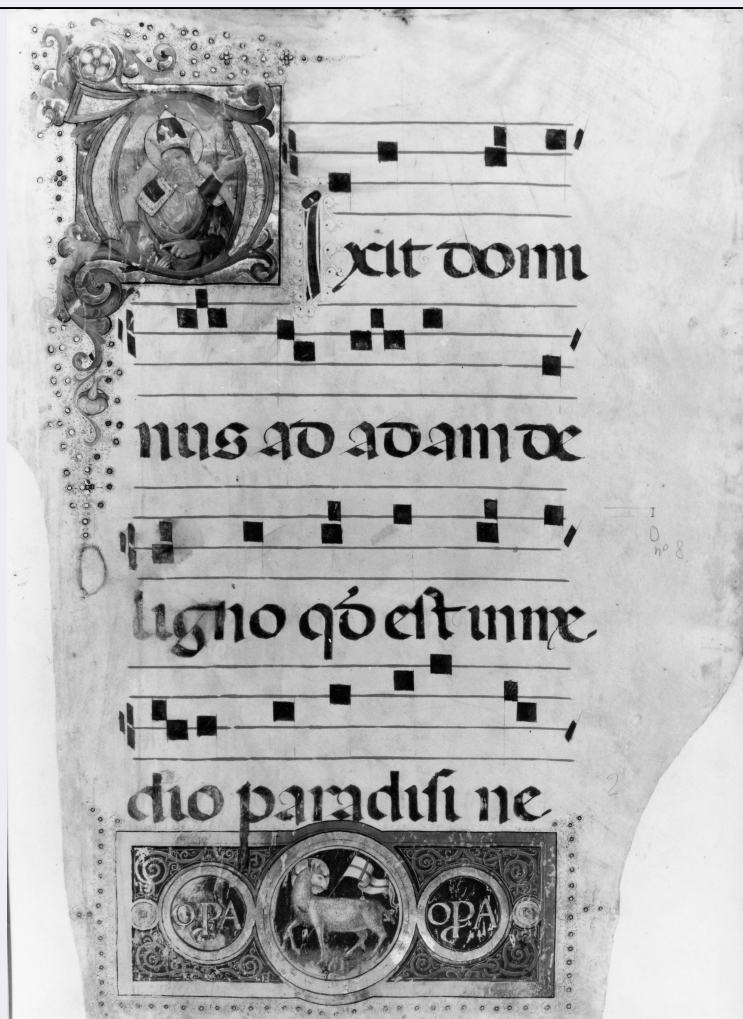 Ixit domi
nus ad adam de
ligno qd est in me
dio paradisi ne
OPA OPA
I
D
nº 8.
2